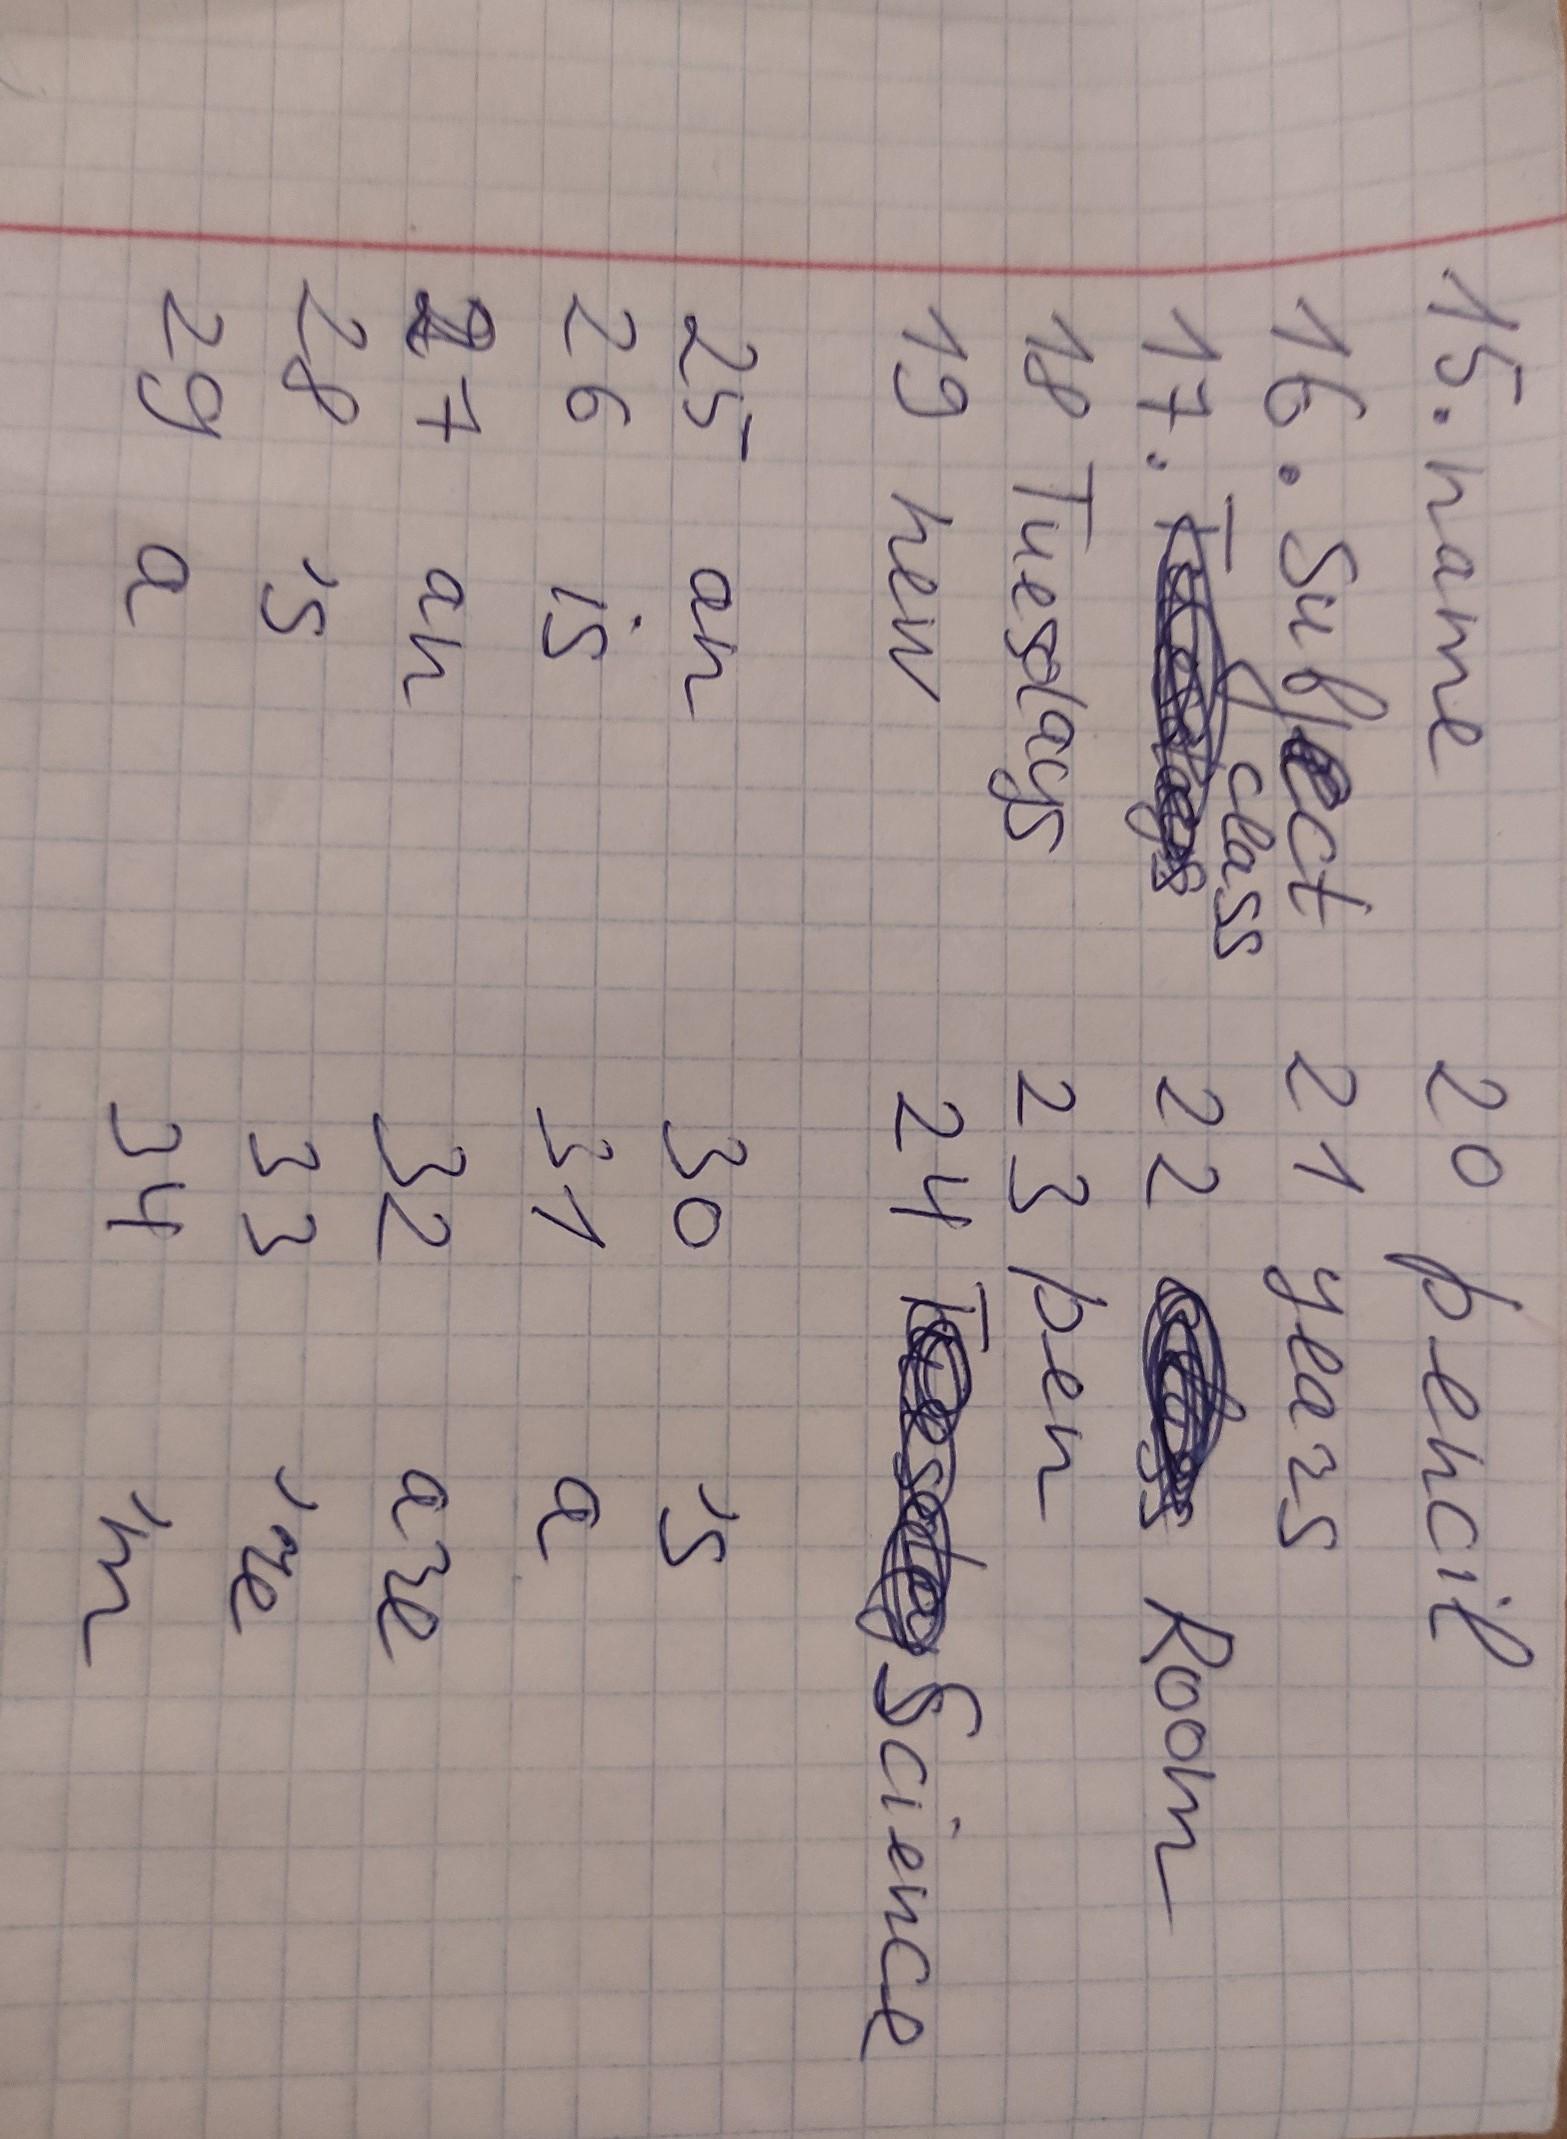 15. name 20 pencil
16. Subject 21 years
17. class 22 Room
18 Tuesdays 23 pen
19 new 24 Science
25 an 30 's
26 is 31 a
27 an 32 are
28 's 33 're
29 a 34 'm